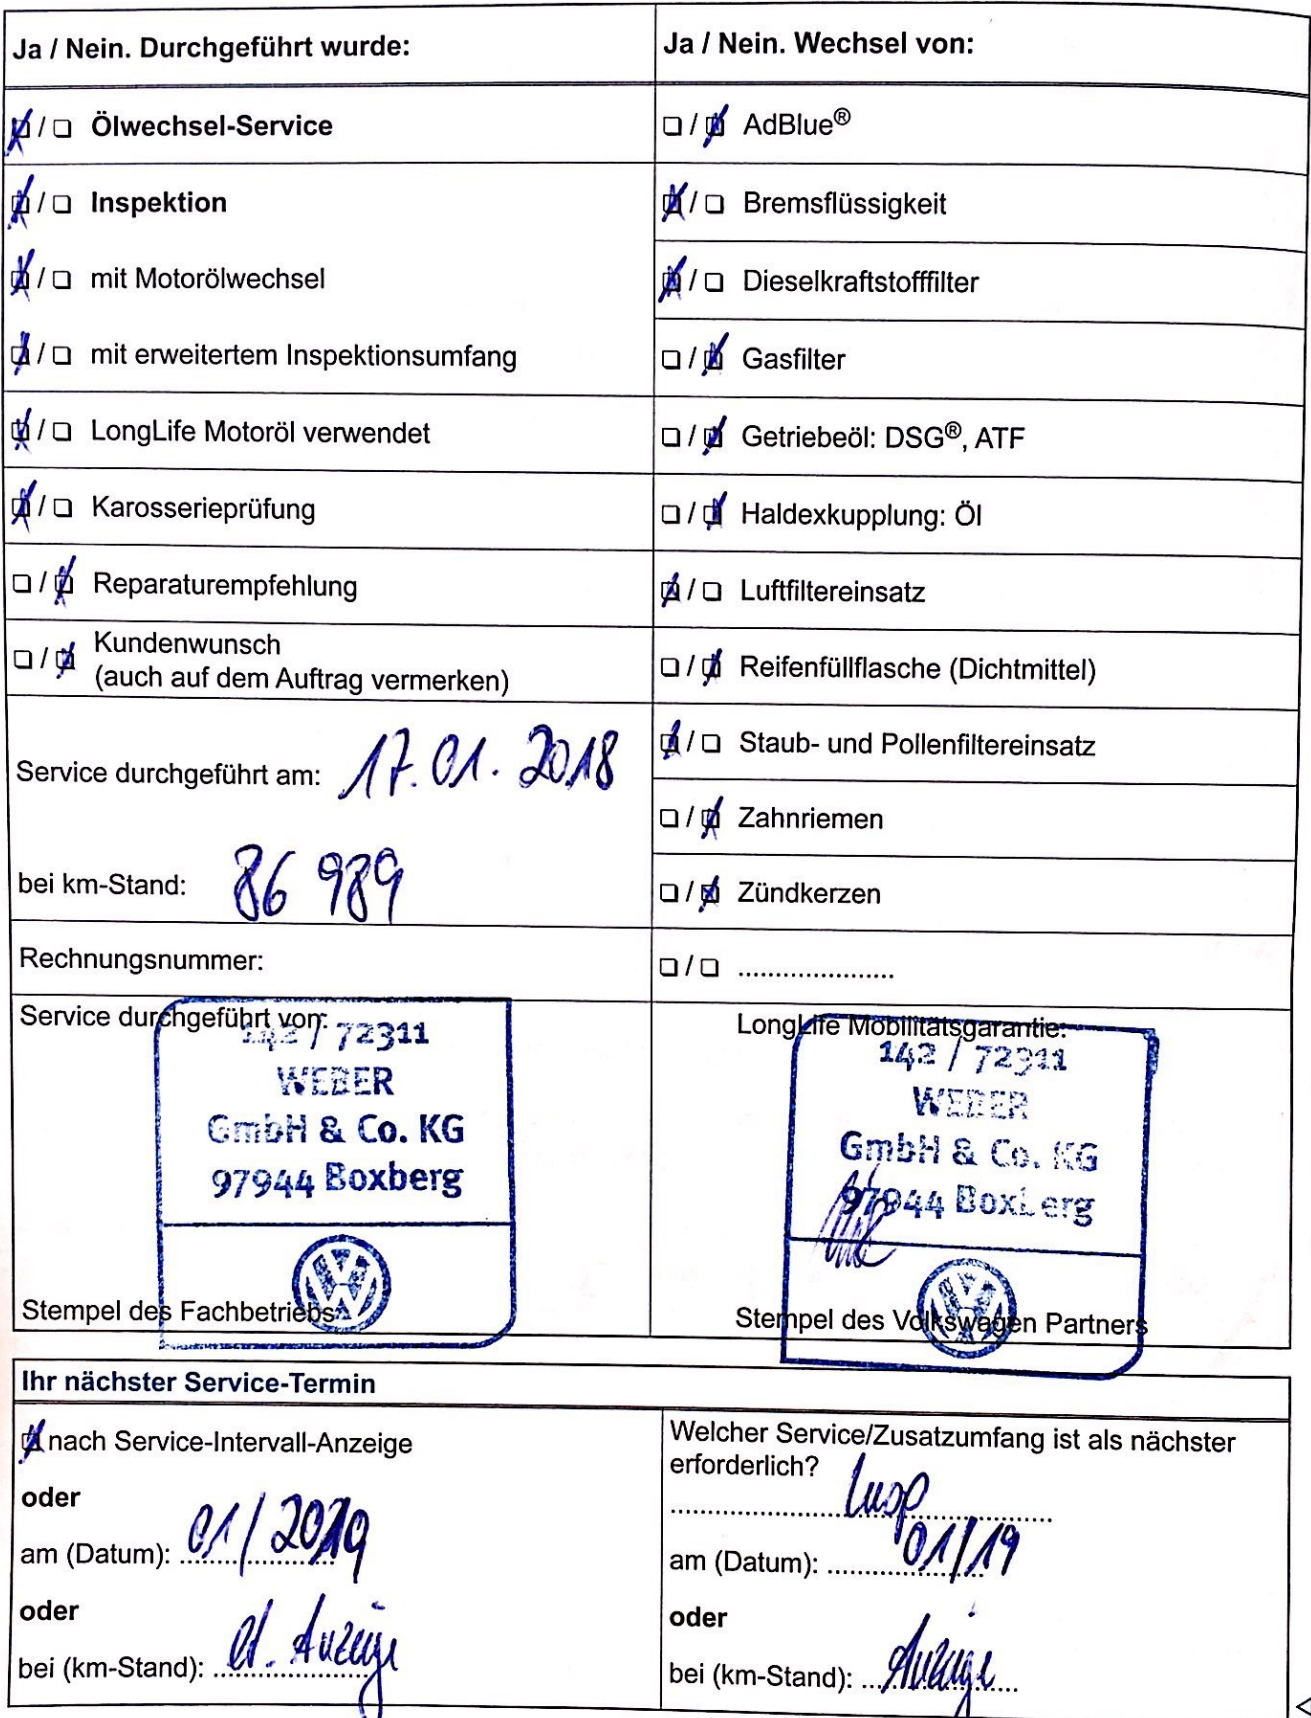 Ja / Nein. Durchgeführt wurde:
☒ / ☐ Ölwechsel-Service
☒ / ☐ Inspektion
☒ / ☐ mit Motorölwechsel
☒ / ☐ mit erweitertem Inspektionsumfang
☒ / ☐ LongLife Motoröl verwendet
☒ / ☐ Karosserieprüfung
☐ / ☒ Reparaturempfehlung
☐ / ☒ Kundenwunsch
(auch auf dem Auftrag vermerken)
Service durchgeführt am: 17.01.2018
bei km-Stand: 86 989
Rechnungsnummer:
Ja / Nein. Wechsel von:
☐ / ☒ AdBlue®
☒ / ☐ Bremsflüssigkeit
☒ / ☐ Dieselkraftstofffilter
☐ / ☒ Gasfilter
☐ / ☒ Getriebeöl: DSG®, ATF
☐ / ☒ Haldexkupplung: Öl
☒ / ☐ Luftfiltereinsatz
☐ / ☒ Reifenfüllflasche (Dichtmittel)
☒ / ☐ Staub- und Pollenfiltereinsatz
☐ / ☒ Zahnriemen
☐ / ☒ Zündkerzen
☐ / ☐ .....................
Service durchgeführt von:
142 / 72311
WEBER
GmbH & Co. KG
97944 Boxberg
Stempel des Fachbetriebs
LongLife Mobilitätsgarantie:
142 / 72311
WEBER
GmbH & Co. KG
97944 Boxberg
Stempel des Volkswagen Partners
Ihr nächster Service-Termin
☒ nach Service-Intervall-Anzeige
oder
am (Datum): 01/2019
oder
bei (km-Stand): Anzeige
Welcher Service/Zusatzumfang ist als nächster
erforderlich?
Insp
am (Datum): 01/19
oder
bei (km-Stand): Anzeige